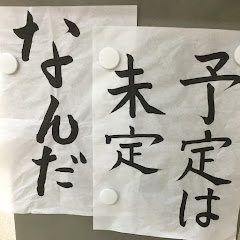 予定は
未定
なんだ